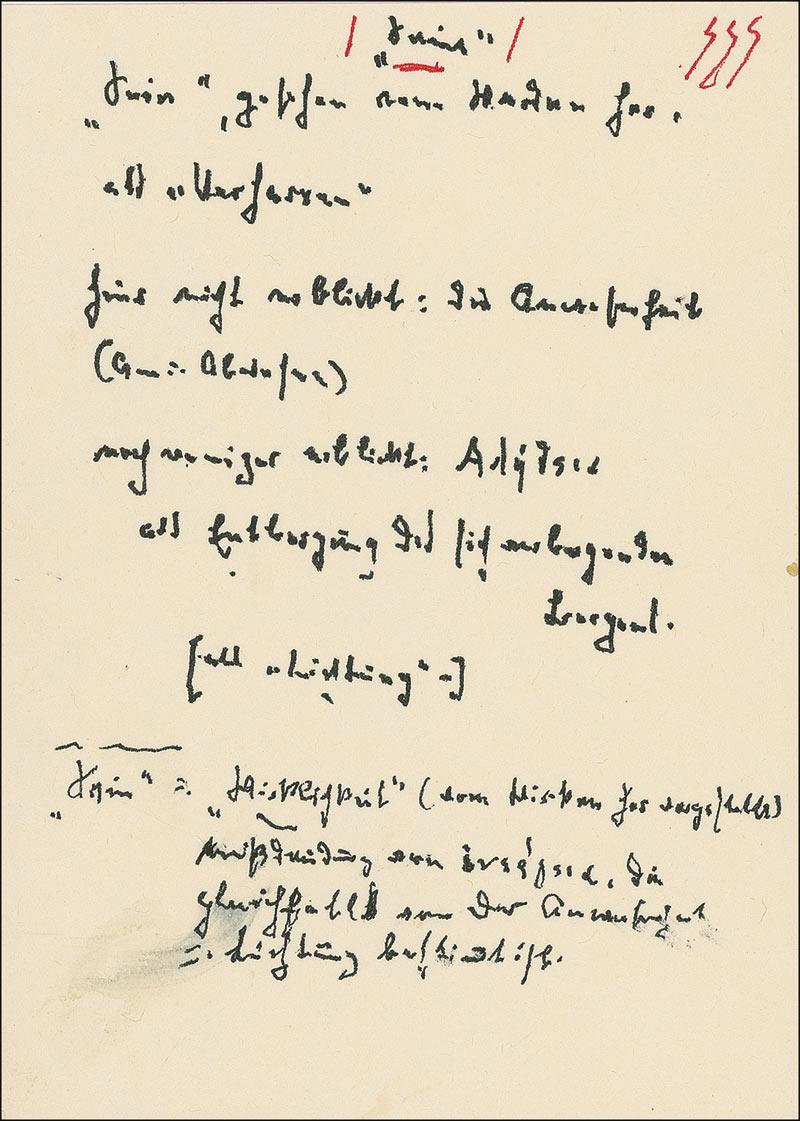 „Sein“
„Sein“, gesehen vom Werden her.
als „Verharren“
hier nicht erblickt: die Anwesenheit
(An- u. Abwesen)
noch weniger erblickt: Ἀλήθεια
als Entbergung des sich verbergenden
[als „Lichtung“ -]
„Sein“ = „Wirklichkeit“ (vom Wirken her vorgestellt)
Mißdeutung von ἐνέργεια, die
gleichfalls von der Anwesenheit
u. Lichtung bestimmt ist.